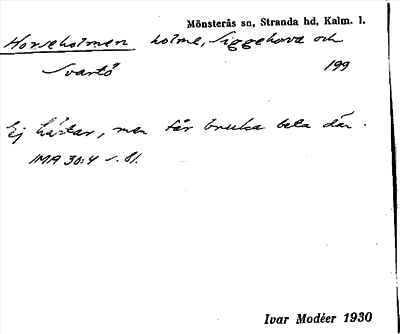 Mönsterås sn, Stranda hd, Kalm. l.
Horseholmen holme, Siggehorva och
Svartö 199
Ej hästar, men får bruka beta där.
IMA 30:4 s. 81.
Ivar Modéer 1930